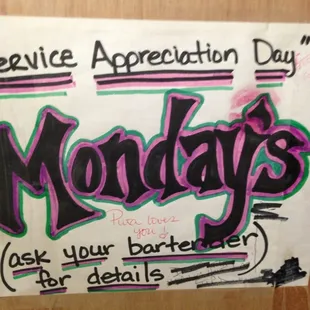 ervice Appreciation Day"
Monday's
loves
you
(ask your bartender)
for details